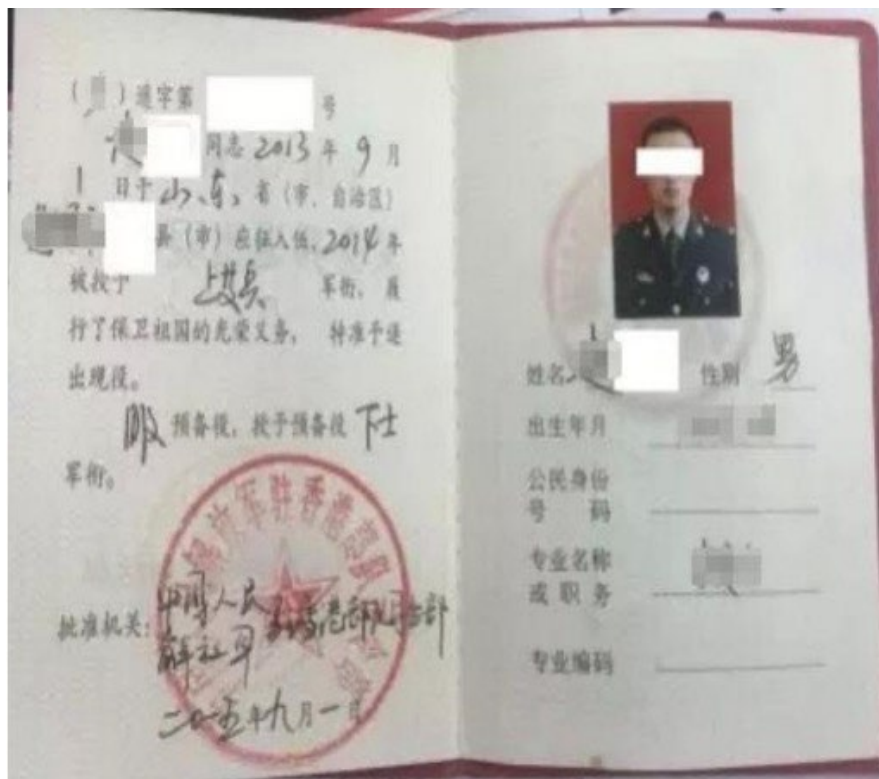 （ ）退字第 号
同志 2013 年 9 月
1 日于 山东 省（市、自治区）
县（市）应征入伍，2014 年
被授予 上等兵 军衔，履
行了保卫祖国的光荣义务， 特准予退
出现役。
服 预备役，授予预备役 下士
军衔。
解放军驻香港部队
批准机关：中国人民
解放军 驻香港部队司令部
二〇一五年九月一日
姓名 性别 男
出生年月
公民身份
号 码
专业名称
或职务
专业编码